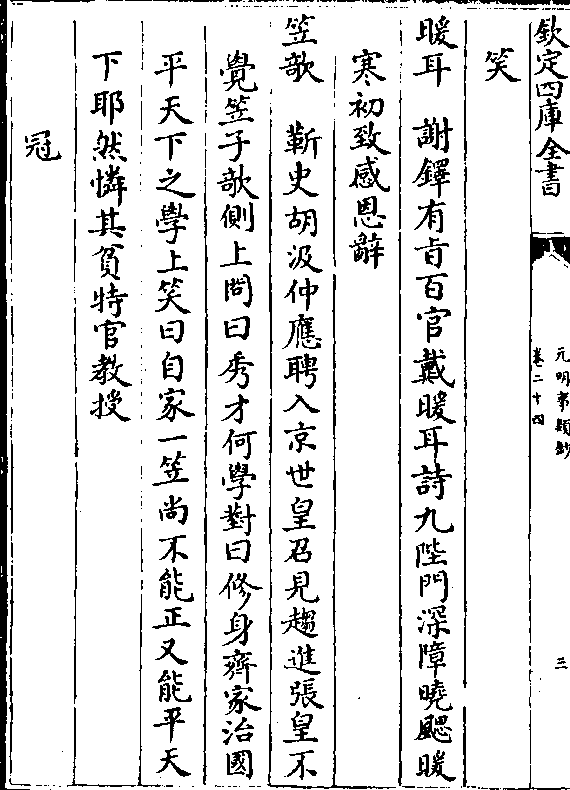 欽定四庫全書
元明事類鈔
卷二十四
三
笑
暖耳 謝鐸有㫖百官戴暖耳詩九陛門深障曉颸暖
寒初致感恩辭
笠欹 靳史胡汲仲應聘入京世皇召見趨進張皇不
覺笠子欹側上問曰秀才何學對曰修身齊家治國
平天下之學上笑曰自家一笠尚不能正又能平天
下耶然憐其貧特官教授
冠